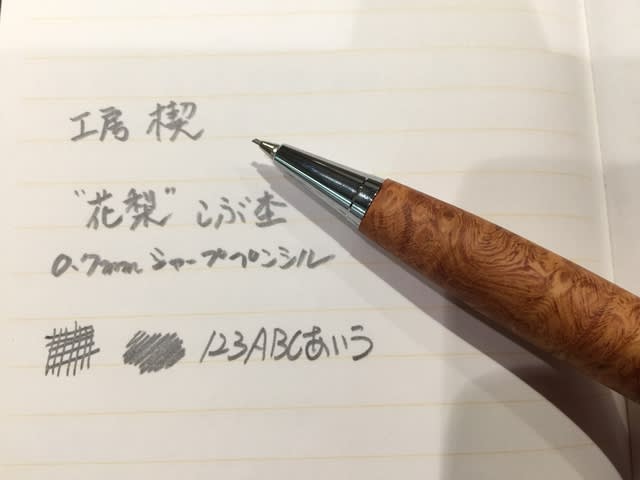 工房 楔
"花梨" こぶ杢
0.7mm シャープペンシル
123ABCあいう